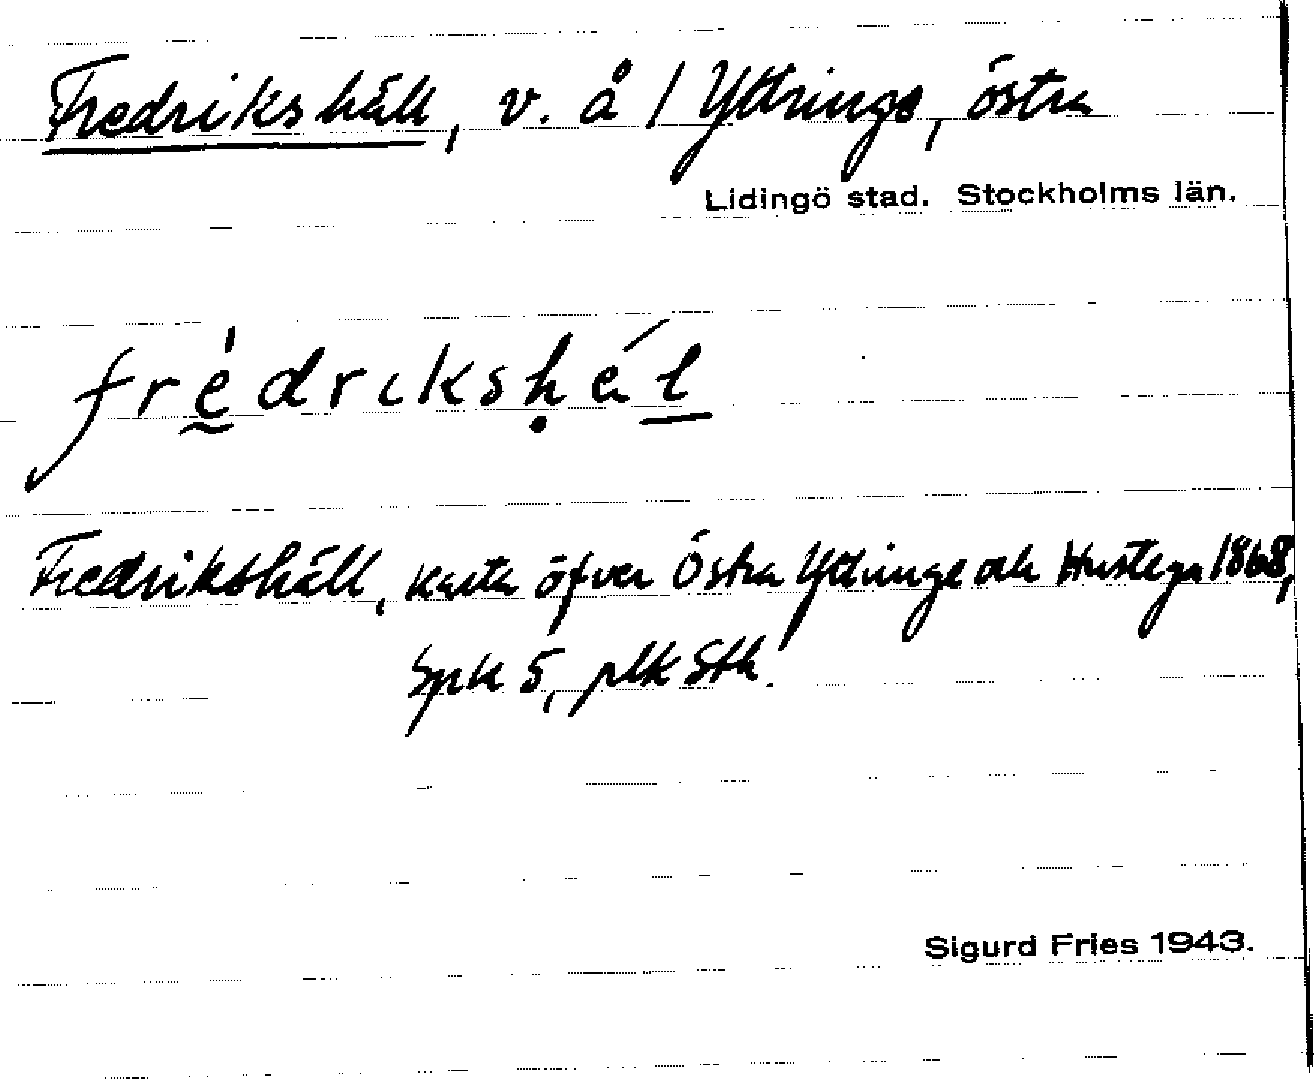 Fredrikshäll, v. å / Yttringe, östra
Lidingö stad. Stockholms län.
fredrikshäl
Fredrikshäll, karta öfver Östra Yttringe och Hustega 1868,
Spk 5, plk Sth.
Sigurd Fries 1943.